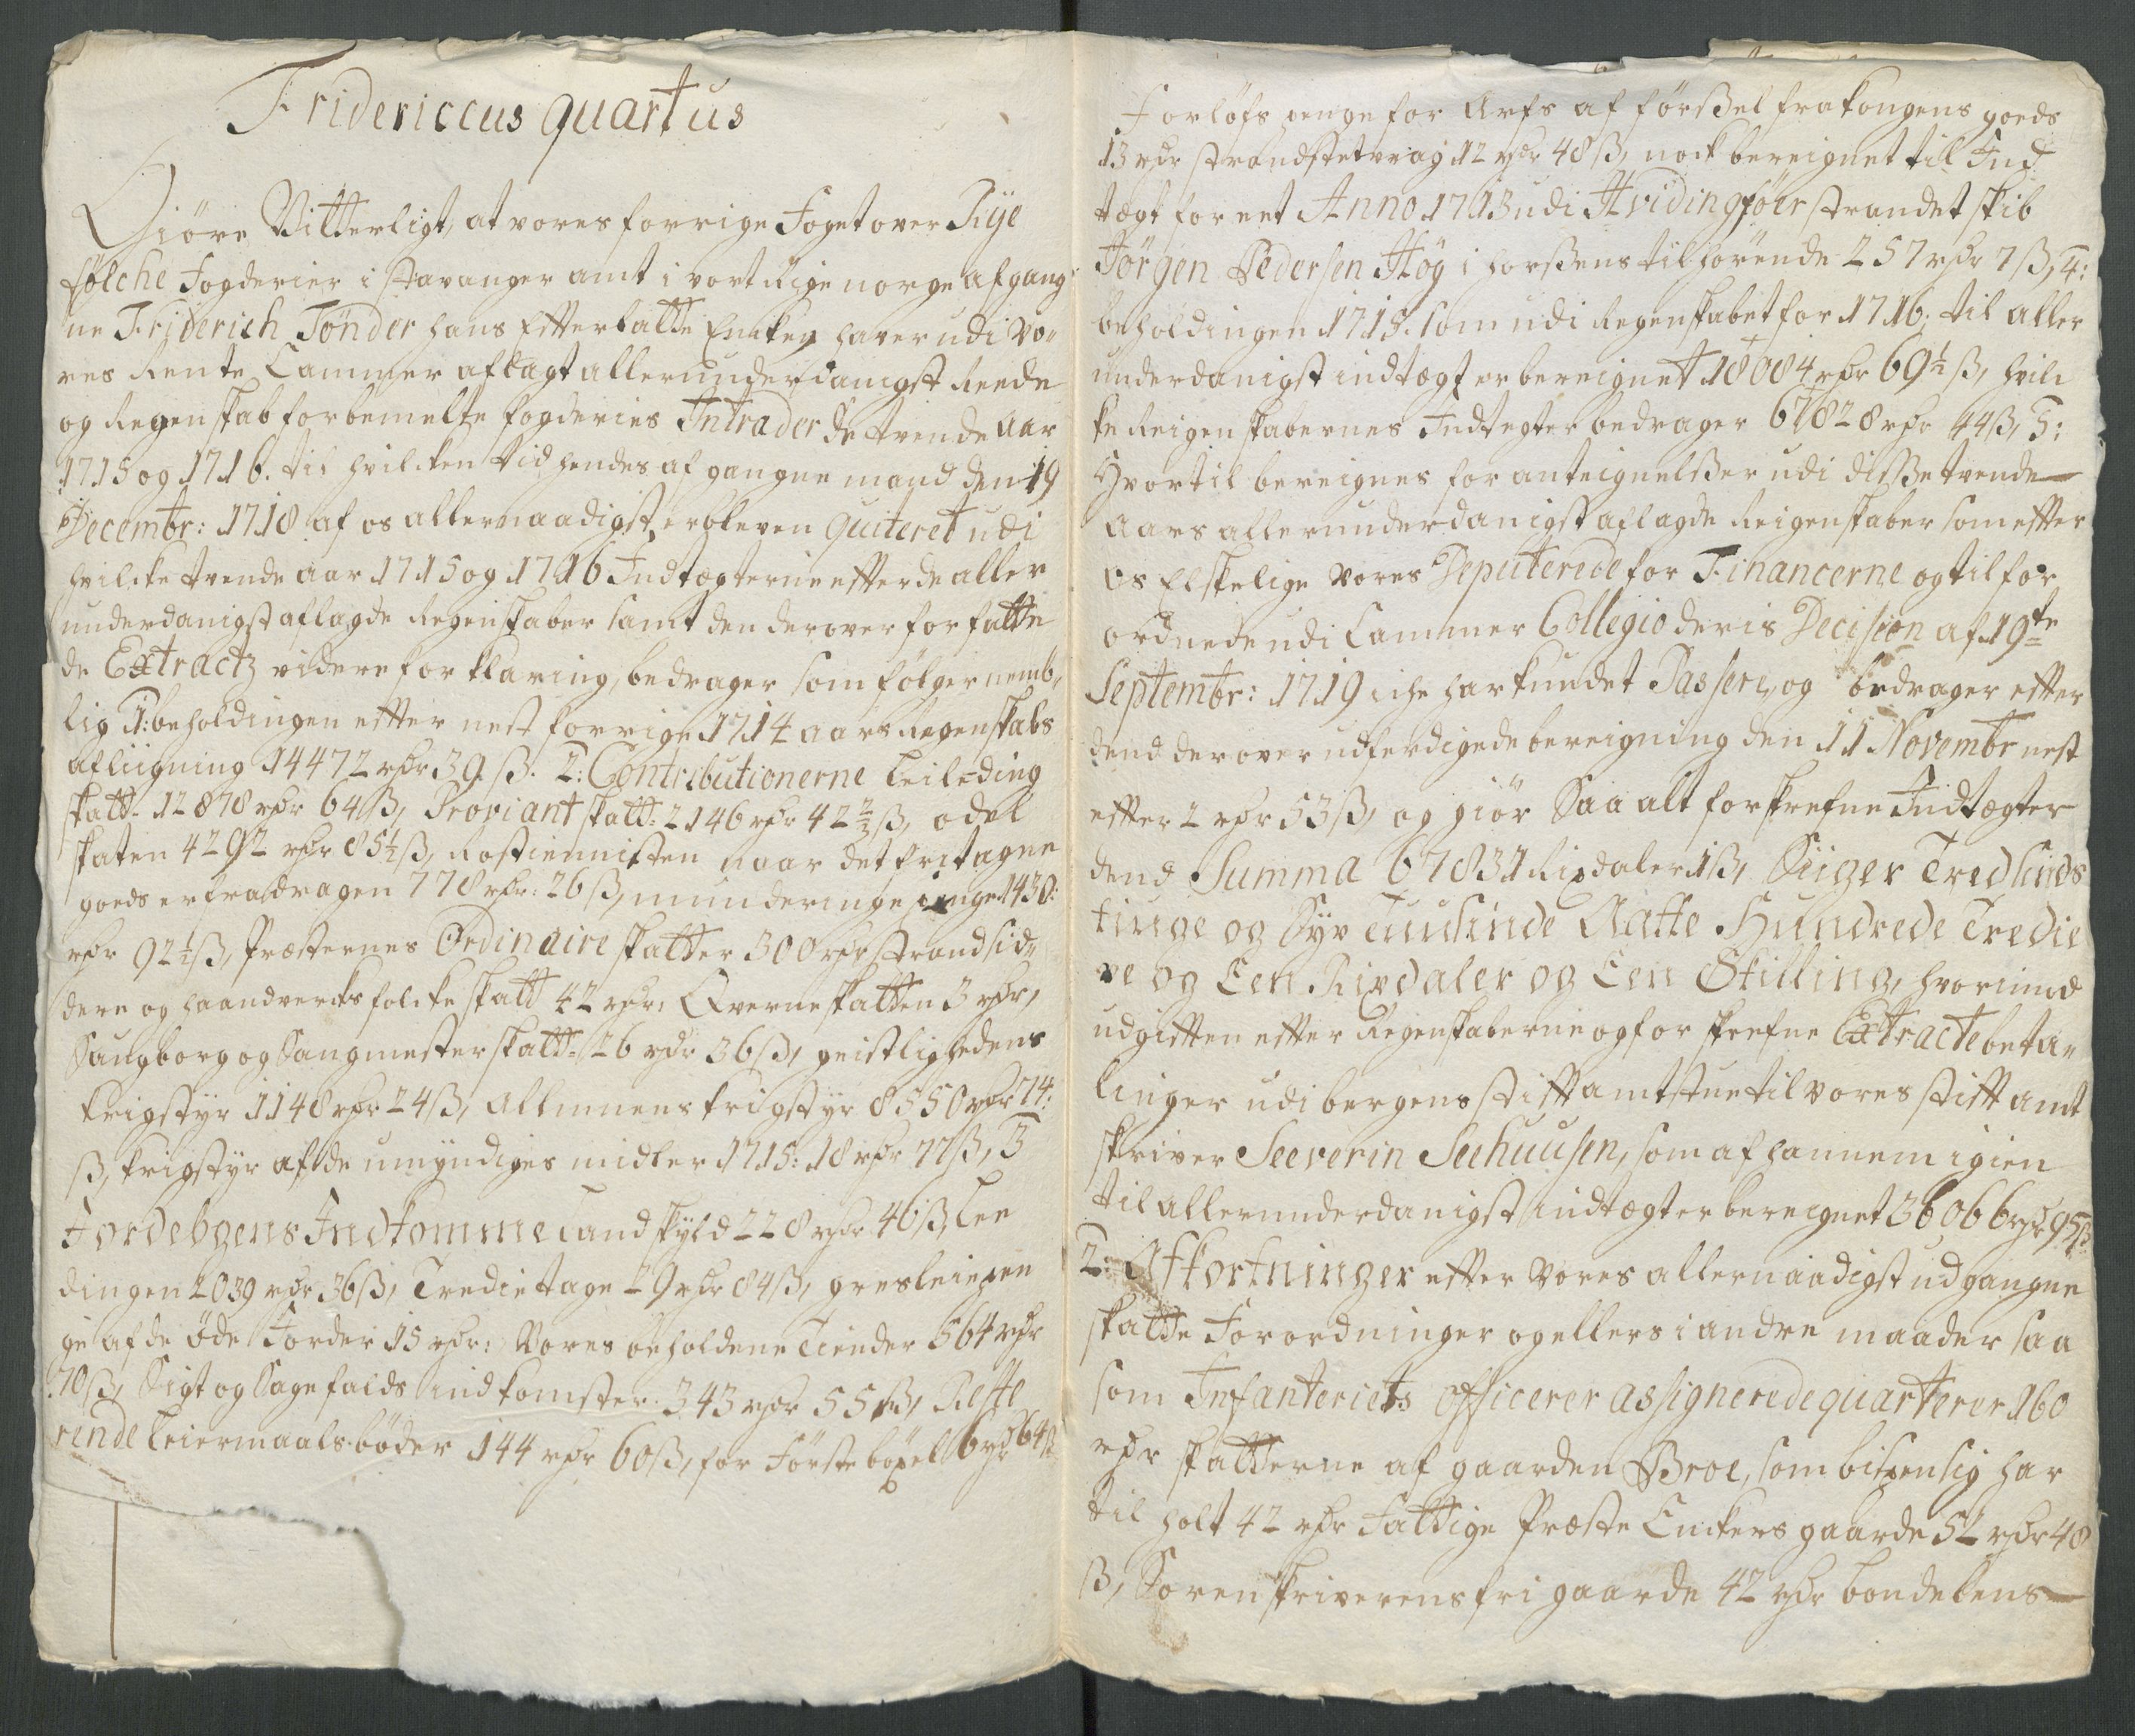 Fridericcus quartus
Giöre Vitterligt, at vores forrige Foget over Rye
fölche Fogderier i Stavanger amt i vort Rige norge afgang
ne Friderich Tönder hans Efterlatte Encke haver udi Vo,,
res Rente Cammer aflagt allerunderdanigst Reede
og Regenskab for bemelte fogderies Intrader de tvende aar
1715 og 1716. til hvilcken tid hendes af gangne mand den 19
Decembr: 1718 af os allernaadigst er bleven quiteret udi
hvilcke tvende aar 1715 og 1716 Indtægterne efter de aller
underdanigst aflagde Regenskaber samt den derover forfatte
de Extractz videre forklaring, bedrager som fölger nemb,,
lig 1: beholdingen efter nest forrige 1714 aars Regenskabs
afliigning 14472 rdr 39 ß. 2: Contributionerne Leilending
skatt 12878 rdr 64 ß, Proviant skatt 2146 rdr 42 2/3 ß, odel
skaten 4292 rdr 85 1/2 ß, Rostienisten naar det fritagne
goeds er fradragen 778 rdr: 26 ß, munderings penge 1430:
rdr 92 1/2 ß, Præsternes Ordinaire skatter 300 rdr strandsid,,
dere og haandvercks folcke skatt 42 rdr, Qverneskatten 3 rdr,
Saugborg og Saugmester skatt 26 rdr 36 ß, geistlighedens
krigstyr 1148 rdr 24 ß, Allmuens krigstyr 8550 rdr 74:
ß, krigstyr af de umyndiges midler 1715: 18 rdr 77 ß, 3
Jordebogens Indkomme Landskyld 228 rdr 46 ß, Lee
dingen 2039 rdr 36 ß, Tredie tage 29 rdr 84 ß, gresleiepen
ge af de öde Jorder 15 rdr: Vores beholdene Tiender 564 rdr
70 ß, Sigt og Sagefalds indkomster 343 rdr 55 ß, Reste
rende Leiermaals böder 144 rdr 60 ß, for Förste böxel 6 rdr 64 ß
Forløfs penge for Arfs af førßel fra kongens goeds
13 rdr strandset vrag 12 rdr 48 ß, nock bereignet til Ind
tægt for eet Anno 1713 udi Hvidingsöer strandet skib
Jörgen Pedersen Höy i horßens tilhörende 257 rdr 7 ß, 4:
beholdingen 1715. som udi Regenskabet for 1716. til aller
underdanigst indtægt er bereignet 18084 rdr 69 1/2 ß, hvil
ke Reigenskabernes Indtegter bedrager 67828 rdr 44 ß, 5:
Hvortil bereignes for anteignelßer udi disße tvende
aars allerunderdanigst aflagde Reigenskaber som efter
os Elskelige Vores Deputerede for Financerne og tilfor
ordnede udi Cammer Collegio deris Decision af 19te
Septembr: 1719 iche har kundet Passere, og bedrager efter
dend derover udferdigede bereigning den 11 Novembr nest
efter 2 rdr 53 ß, og giör Saa alt forskrefne Indtægter
dend Summa 67831 Rixdaler 1 ß, Siiger Tredsinds
tiuge og Syv Tuusinde Aatte Hundrede Tredie
ve og Een Rixdaler og Een Skilling, hvorimod
udgiften efter Regenskaberne og for skrefne Extracte beta,,
linger udi bergens stiftamtstue til vores stift amt
skriver Seeverin Seehuusen, som af hannem igien
til allerunderdanigst indtægt er bereignet 36066 rdr 95 ß
2: Afkortninger efter Vores allernaadigst udgangne
skatte Forordninger og ellers i andre maader saa
som Infanteriets officerer assignerede quarterer 160
rdr skatterne af gaarden Broe, som bispen sig har
til holt 42 rdr Fattige Præste Enckers gaarde 52 rdr 48
ß, Sorenskriverens fri gaarde 42 rdr bondelens